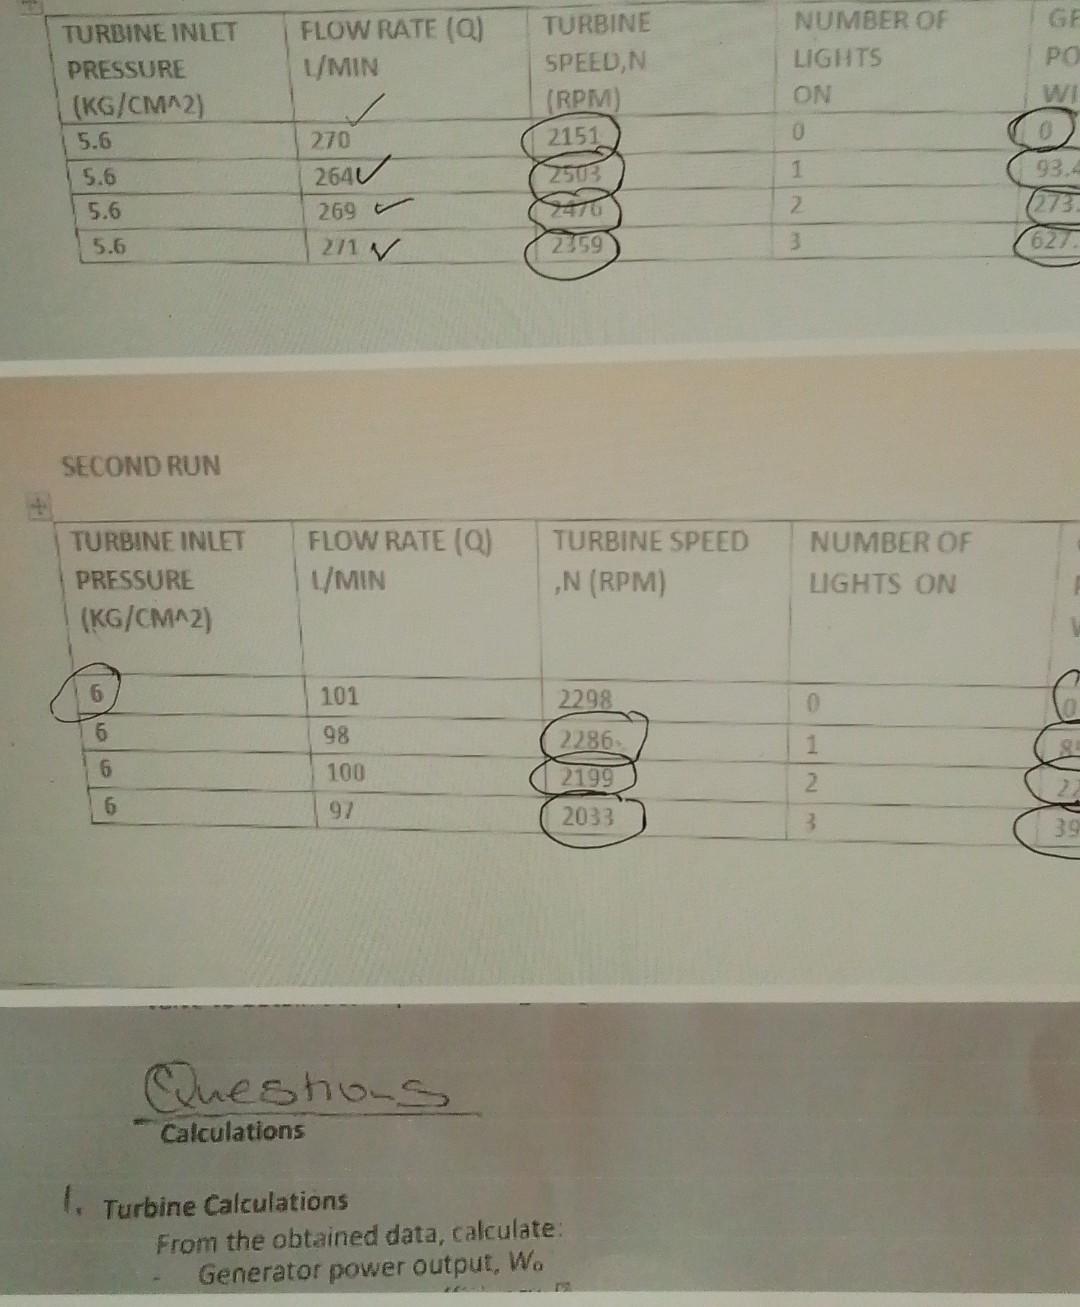 TURBINE INLET PRESSURE (KG/CM^2) FLOW RATE (Q) L/MIN TURBINE SPEED,N (RPM) NUMBER OF LIGHTS ON
5.6 270 2151 0 0
5.6 264 2503 1 93.4
5.6 269 2476 2 273.
5.6 271 2359 3 627.
SECOND RUN
TURBINE INLET PRESSURE (KG/CM^2) FLOW RATE (Q) L/MIN TURBINE SPEED ,N (RPM) NUMBER OF LIGHTS ON
6 101 2298 0 0
6 98 2286 1
6 100 2199 2 22
6 97 2033 3 39
Questions
Calculations
1. Turbine Calculations
From the obtained data, calculate:
- Generator power output, Wo